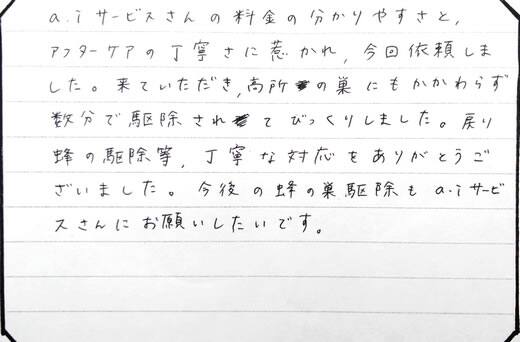 a.iサービスさんの料金の分かりやすさと,
アフターケアの丁寧さに惹かれ,今回依頼しま
した。来ていただき,高所の巣にもかかわらず
数分で駆除されてびっくりしました。戻り
蜂の駆除等,丁寧な対応をありがとうご
ざいました。今後の蜂の巣駆除もa.iサービ
スさんにお願いしたいです。